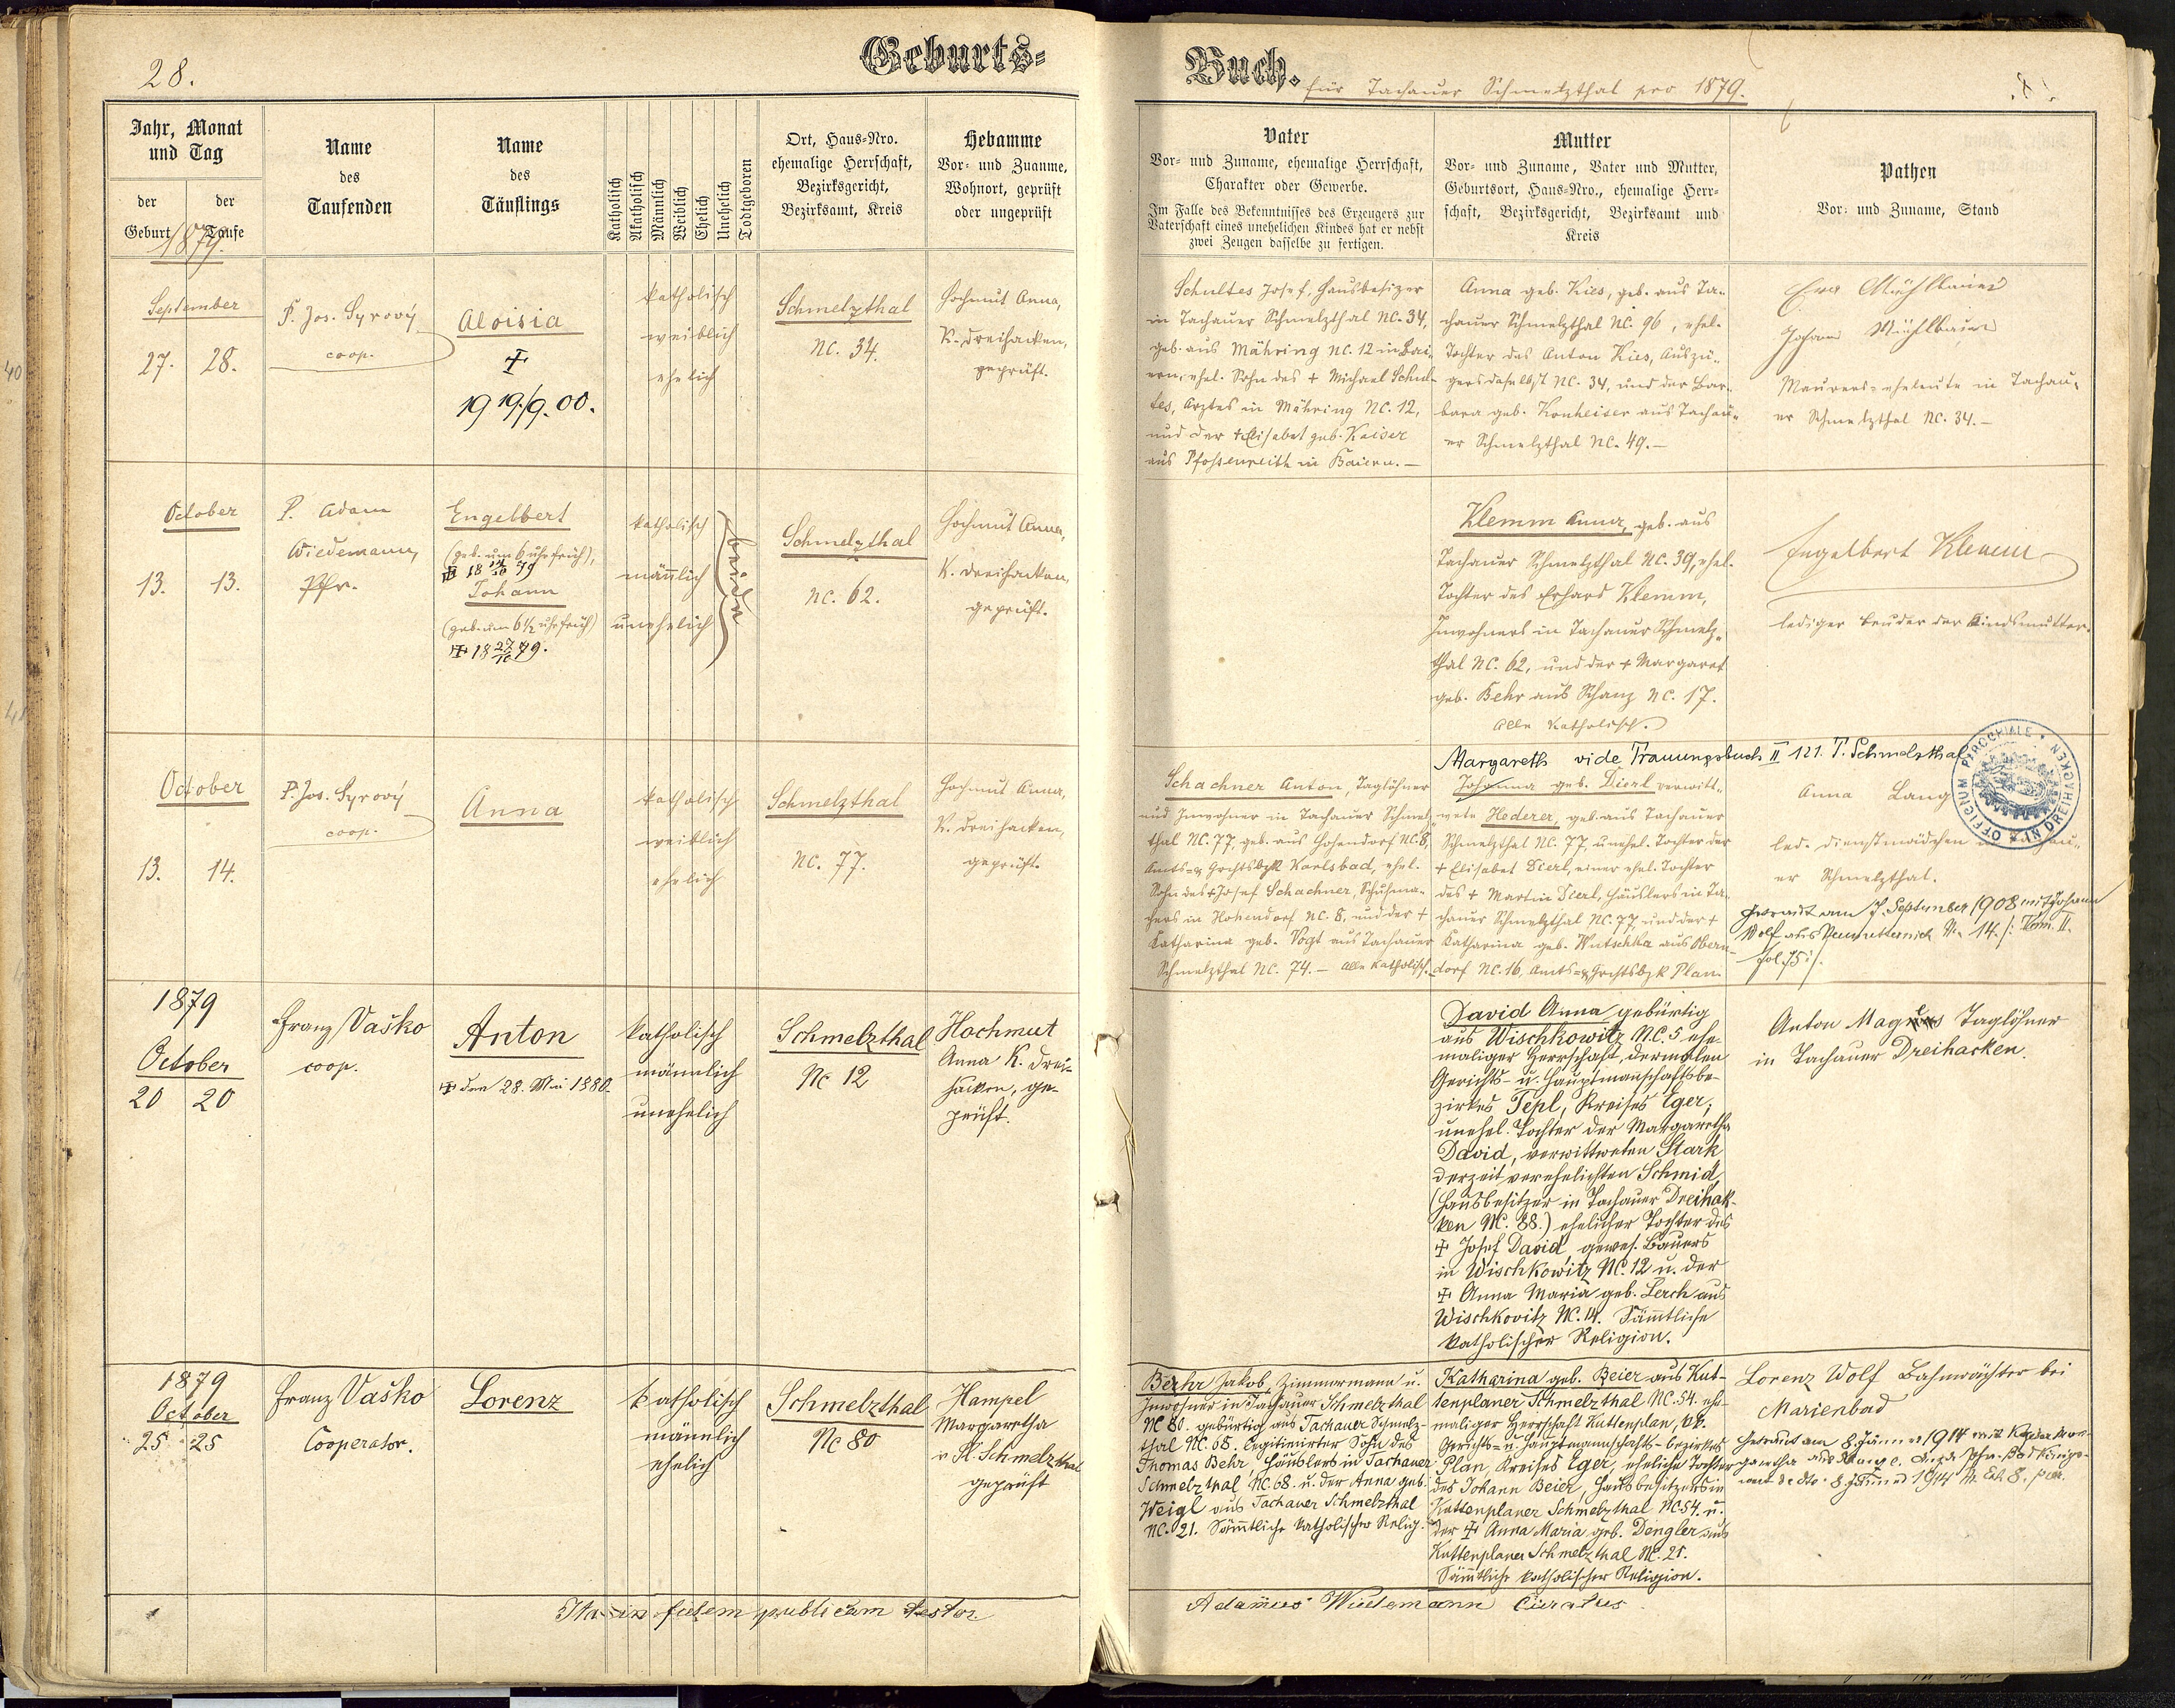 28.
Geburts=
Buch. für Tachauer Schmelzthal pro 1879.
Jahr, Monat
und Tag
der Geburt
der Taufe
1879.
Name
des
Taufenden
Name
des
Täuflings
Katholisch
Akatholisch
Männlich
Weiblich
Ehelich
Unehelich
Todtgeboren
Ort, Haus=Nro.
ehemalige Herrschaft,
Bezirksgericht,
Bezirksamt, Kreis
Hebamme
Vor= und Zuanme,
Wohnort, geprüft
oder ungeprüft
Vater
Vor= und Zuname, ehemalige Herrschaft,
Charakter oder Gewerbe.
Im Falle des Bekenntnisses des Erzeugers zur
Vaterschaft eines unehelichen Kindes hat er nebst
zwei Zeugen dasselbe zu fertigen.
Mutter
Vor= und Zuname, Vater und Mutter,
Geburtsort, Haus=Nro., ehemalige Herr=
schaft, Bezirksgericht, Bezirksamt und
Kreis
Pathen
Vor= und Zuname, Stand
40
September
27. 28.
P. Jos. Syrový
coop.
Aloisia
✠
19 19./9. 00.
katholisch
weiblich
ehelich
Schmelzthal
NC. 34.
Hochmut Anna,
K. Dreihacken,
geprüft.
Schultes Josef, Hausbesizer
in Tachauer Schmelzthal NC. 34,
geb. aus Mähring NC. 12 in Bai=
ern, ehel. Sohn des + Michael Schul=
tes, Arztes in Mähring NC. 12,
und der + Elisabet geb. Kaiser
aus Pfossenreith in Baiern. —
Anna geb. Kies, geb. aus Ta=
chauer Schmelzthal NC. 96, ehel.
Tochter des Anton Kies, Auszü=
gers daselbst NC. 34, und der Bar=
bara geb. Konheiser aus Tachau=
er Schmelzthal NC. 49. —
Eva Mühlbauer
Johann Mühlbauer
Maurers=eheleute in Tachau=
er Schmelzthal NC. 34. —
October
13. 13.
P. Adam
Wiedemann,
Pfr.
Engelbert
(geb. um 6 uhr früh),
Johann
(geb. um 6½ uhr früh)
✠ 18 27/10 79.
katholisch
männlich
unehelich
beide
Schmelzthal
NC. 62.
Hochmut Anna,
K. Dreihacken,
geprüft.
Klemm Anna, geb. aus
Tachauer Schmelzthal NC. 39, ehel.
Tochter des Erhard Klemm,
Inwohners in Tachauer Schmelz=
thal NC. 62, und der + Margaret
geb. Behr aus Schanz NC. 17.
Alle katholisch.
Engelbert Klemm
lediger Bruder der Kindsmutter.
October
13. 14.
P. Jos. Syrový
coop.
Anna
katholisch
weiblich
ehelich
Schmelzthal
NC. 77.
Hochmut Anna,
K. Dreihacken,
geprüft.
Schachner Anton, Taglöhner
und Inwohner in Tachauer Schmelz=
thal NC. 77, geb. aus Hohendorf NC. 8,
Amts= & Grchtsbzk Karlsbad, ehel.
Sohn des + Josef Schachner, Schuhma=
chers in Hohendorf NC. 8, und der +
Katharina geb. Vogt aus Tachauer
Schmelzthal NC. 74. — Alle katholisch.
Margareth vide Trauungsbuch II 121. T. Schmelzthal
Johanna geb. Dierl verwitt=
wete Hederer, geb. aus Tachauer
Schmelzthal NC. 77, unehel. Tochter der
+ Elisabet Dierl, einer ehel. Tochter
des + Martin Dierl, Häuslers in Ta=
chauer Schmelzthal NC. 77, und der +
Katharina geb. Wutschka aus Obern=
dorf NC. 16, Amts= & Grchtsbzk Plan.
Anna Lang
led. Dienstmädchen in Tachau=
er Schmelzthal.
OFFICIUM PAROCHIALE * IN DREIHACKEN
Getraut am 7. September 1908 mit Johann
Wolf aus Neumetternich No 14. /: Tom. II.
fol. 75 :/.
1879
October
20 20
Franz Vaško
coop.
Anton
✠ den 28. Mai 1880.
katholisch
männlich
unehelich
Schmelzthal
Nc 12
Hochmut
Anna K. Drei=
hacken, ge=
prüft.
David Anna gebürtig
aus Wischkowitz NC. 5 ehe=
maliger Herrschaft, dermalen
Gerichts- u. Hauptmanschaftsbe=
zirkes Tepl, Kreises Eger;
unehel. Tochter der Margaretha
David, verwittweten Stark
derzeit verehelichten Schmid,
(Hausbesitzer in Tachauer Dreihak=
ken NC. 88.) ehelicher Tochter des
✠ Josef David gewes. Bauers
in Wischkowitz NC. 12 u. der
✠ Anna Maria geb. Lerch aus
Wischkovitz NC. 14. Sämtliche
katholischer Religion.
Anton Magnes Taglöhner
in Tachauer Dreihacken.
1879
October
25 25
Franz Vaško
Cooperator.
Lorenz
katholisch
männlich
ehelich
Schmelzthal
Nc 80
Hampel
Margaretha
v. Pl. Schmelzthal
geprüft
Berhr Jakob, Zimmermann u.
Inwohner in Tachauer Schmelzthal
NC 80. gebürtig aus Tachauer Schmelz=
thal NC. 68. legitimirter Sohn des
Thomas Behr, Häuslers in Tachauer
Schmelzthal NC. 68. u. der Anna geb.
Weigl aus Tachauer Schmelzthal
NC. 21. Sämtliche katholischer Relig.
Katharina geb. Beier aus Kut=
tenplaner Schmelzthal NC. 54. ehe=
maliger Herrschaft Kuttenplan,
Gerichts= u. Hauptmannschafts=bezirkes
Plan, Kreises Eger, eheliche Tochter
des Johann Beier, Hausbesitzers in
Kuttenplaner Schmelzthal NC 54. u.
der ✠ Anna Maria geb. Dengler aus
Kuttenplaner Schmelzthal NC. 21.
Sämtliche katholischer Religion.
Lorenz Wolf Bahnwächter bei
Marienbad
Ita in fidem publicam testor.
Adamus Wiedemann Curatus